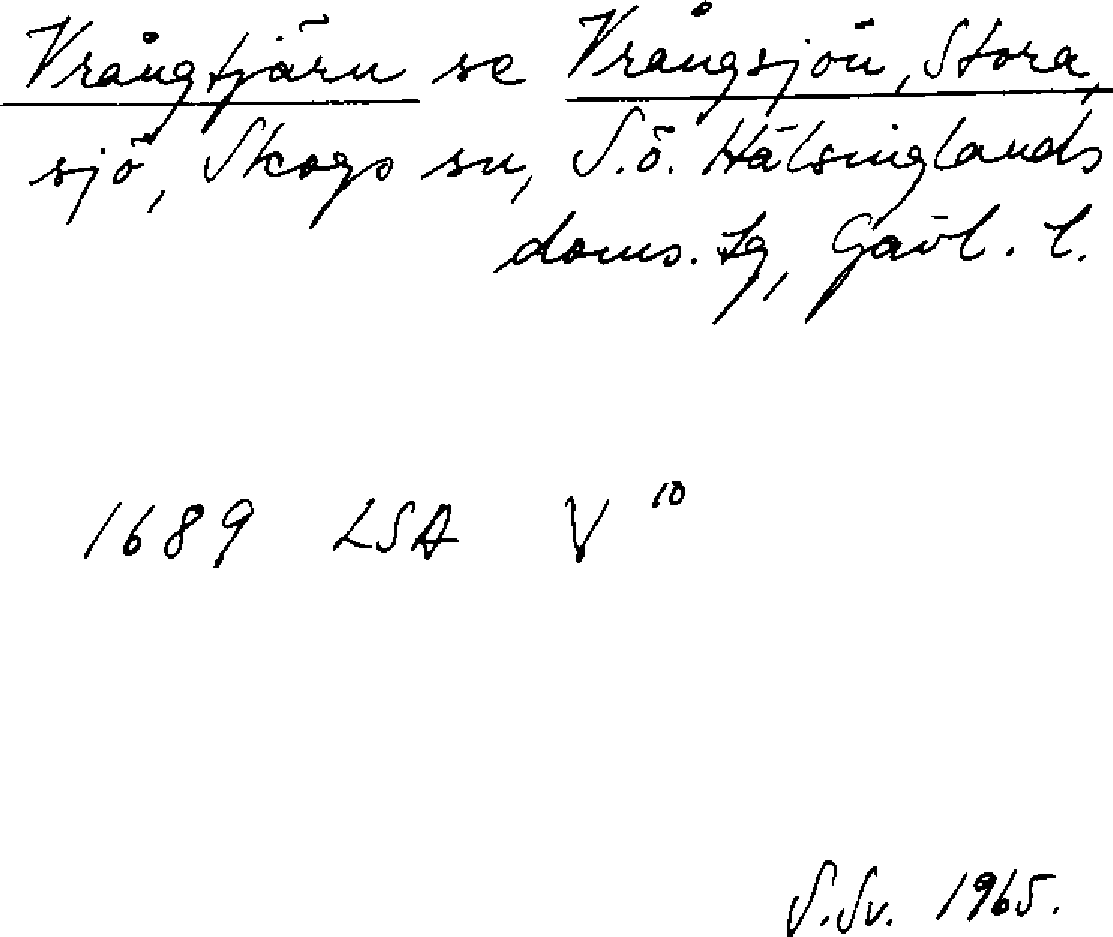 Vrångtjärn se Vrångsjön, Stora,
sjö, Skogs sn, S.ö. Hälsinglands
doms. tg, Gävl. l.
1689 LSA V 10
S.Sv. 1965.